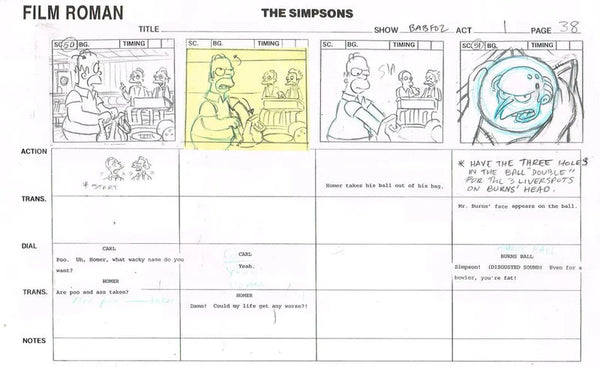 FILM ROMAN
THE SIMPSONS
TITLE
SHOW BABF02 ACT 1 PAGE 38
SC. 50 BG. TIMING
SC. BG. TIMING
SC. BG. TIMING
SC. 51 BG. TIMING
S/A
ACTION
* START
Homer takes his ball out of his bag.
* HAVE THE THREE HOLES
IN THE BALL "DOUBLE"
FOR THE 3 LIVERSPOTS
ON BURNS' HEAD.
TRANS.
Mr. Burns' face appears on the ball.
DIAL
CARL
Poo. Uh, Homer, what wacky name do you
want?
HOMER
Are poo and ass taken?
CARL
Yeah.
HOMER
Damn! Could my life get any worse?!
BURNS BALL
Simpson! (DISGUSTED SOUND) Even for a
bowler, you're fat!
TRANS.
NOTES